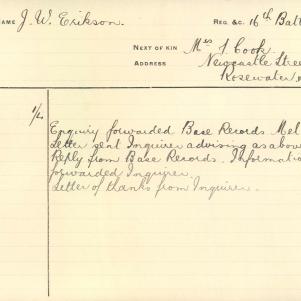 NAME J. W. Erikson. REG. &C. 16th Batt
NEXT OF KIN Mrs S. Cook.
ADDRESS Newcastle Stree
Rosewater
1/2.
Enquiry forwarded Base Records Mel
Letter sent Inquirer advising as above
Reply from Base Records. Informatio
forwarded Inquirer.
Letter of thanks from Inquirer.